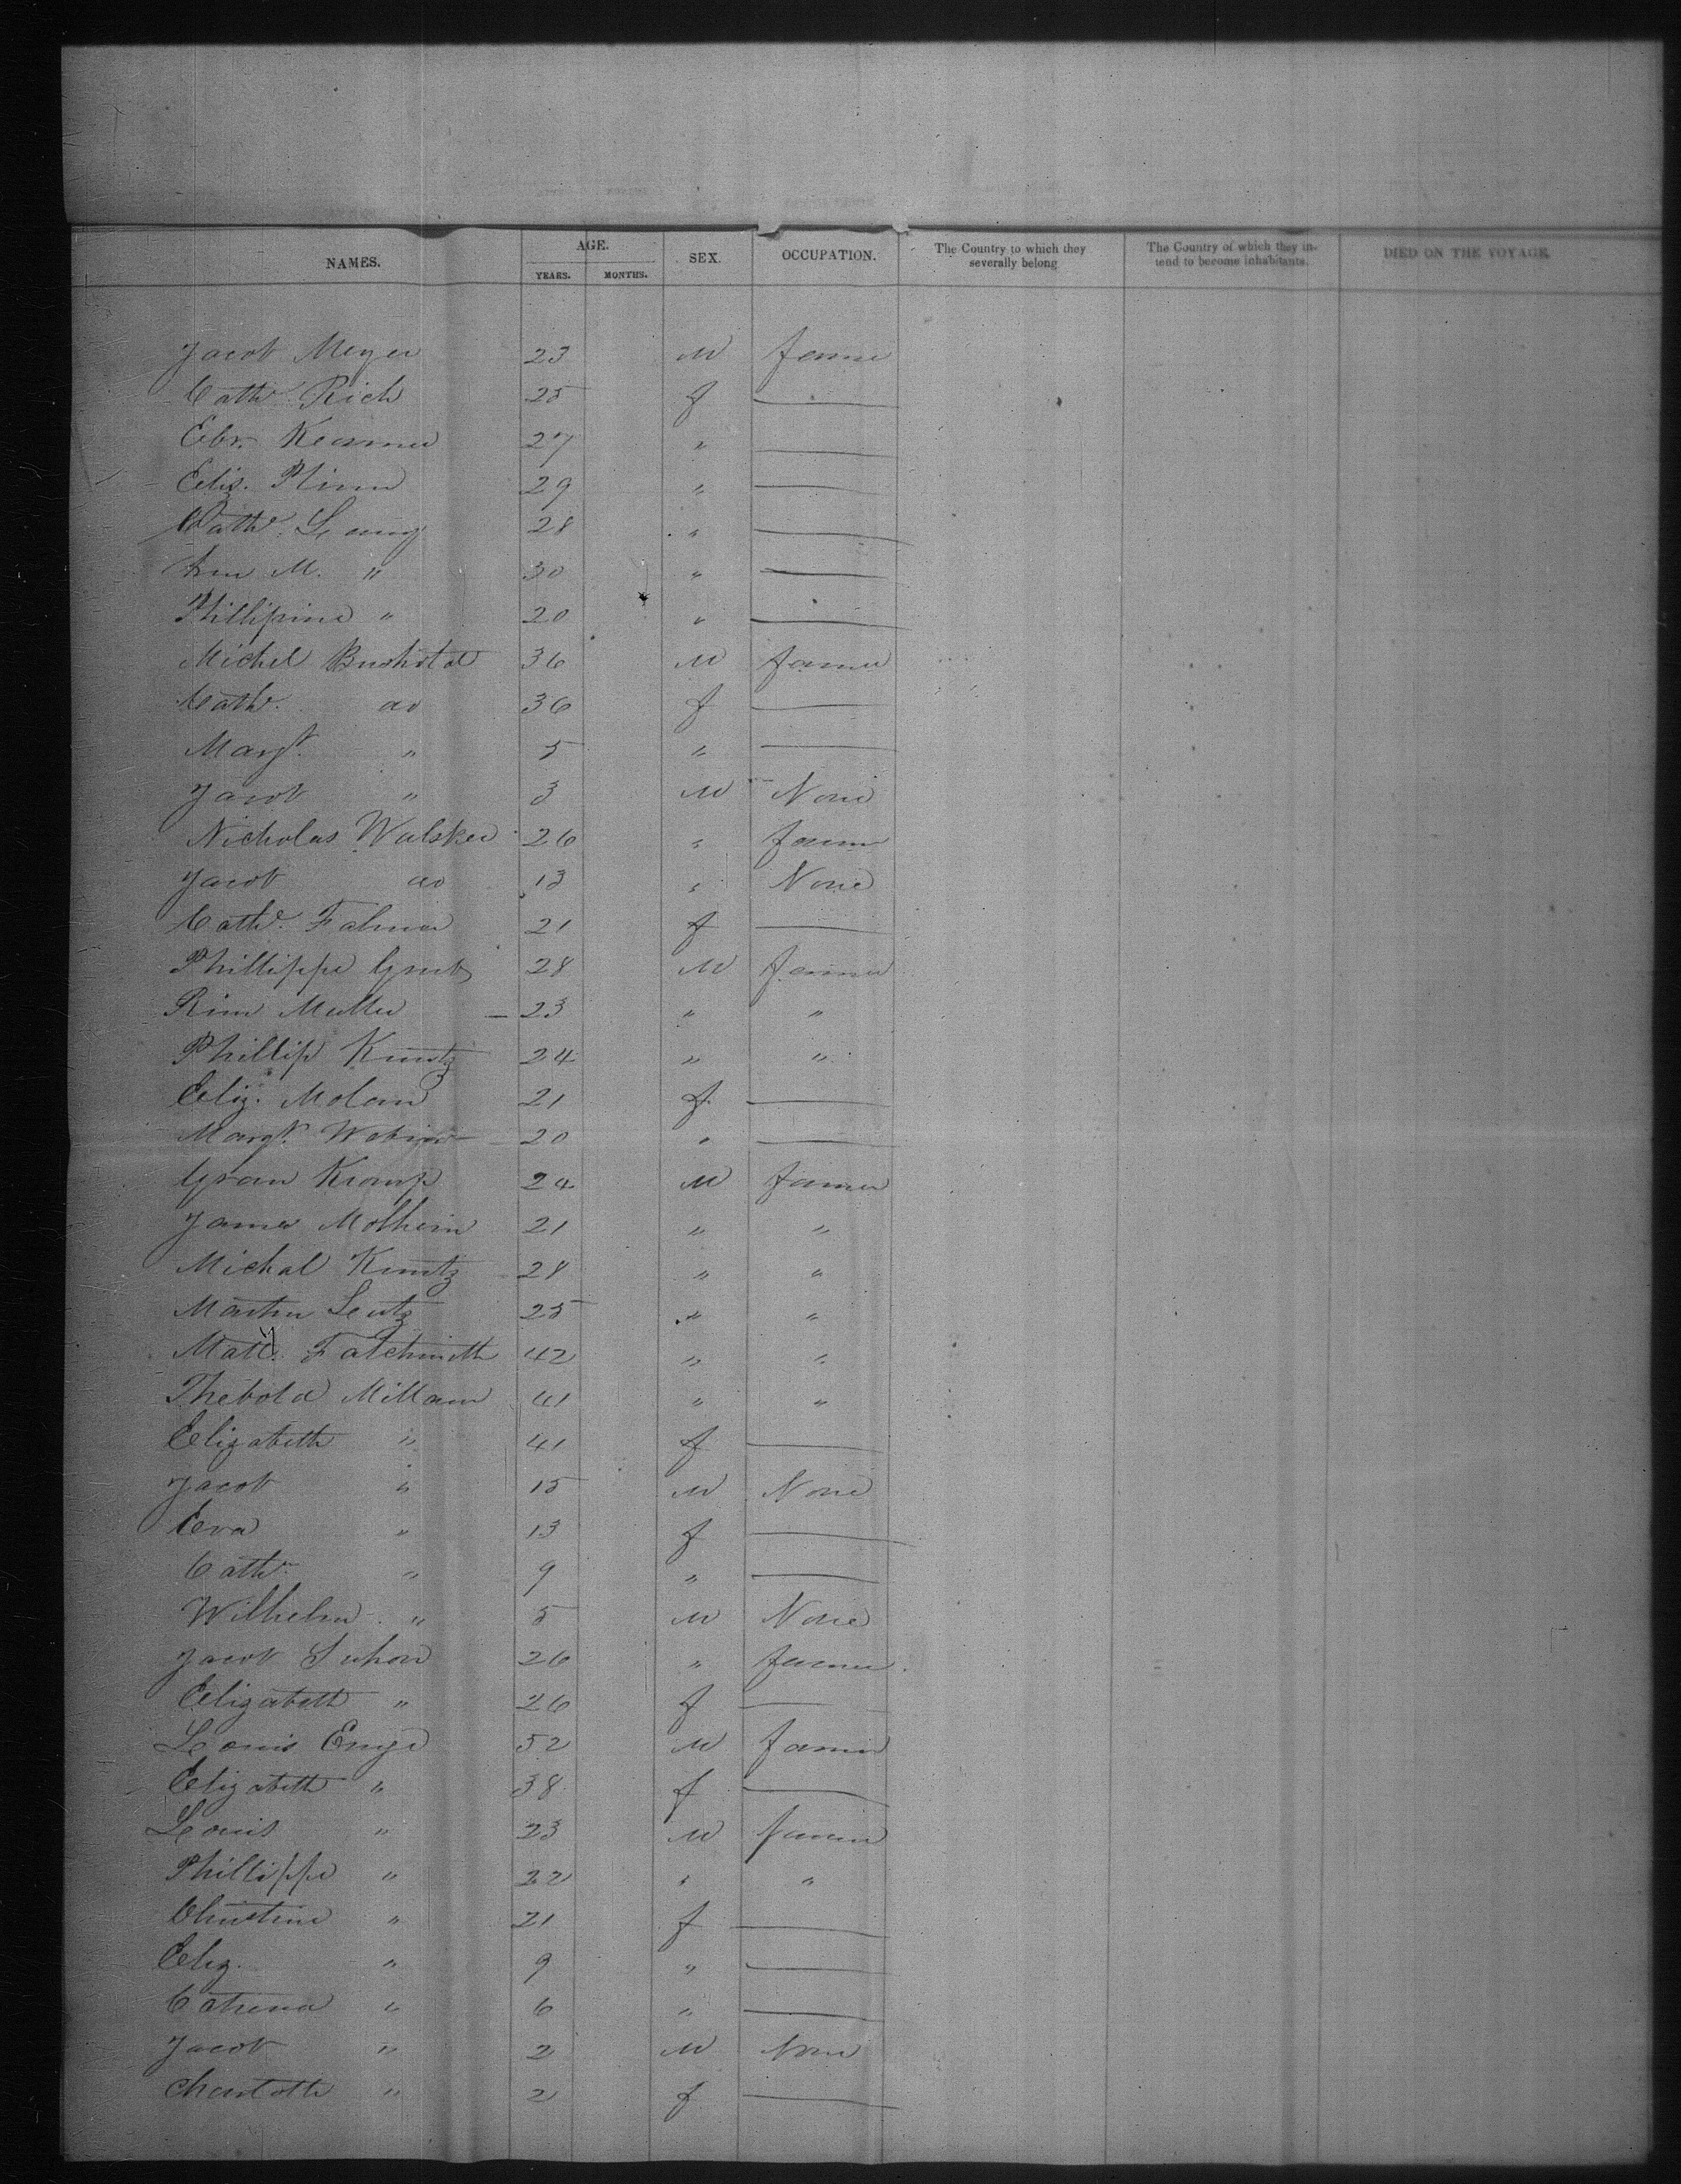 NAMES. AGE. SEX. OCCUPATION. The Country to which they severally belong The Country of which they intend to become inhabitants. DIED ON THE VOYAGE.
YEARS. MONTHS.
Jacob Meyer 23 M farmer
Cathe. Rich 25 f
27 "
Eliz. 29 "
Cathe. 28 "
M. " 30 "
Phillipine " 20 "
Michel 36 M farmer
Cathe. do 36 f
Margt. " 5 "
Jacob " 3 M None
Nicholas Walsker 26 " farmer
Jacob do 13 " None
Cathe. 21 f
Phillippe 28 M farmer
Muller 23 " "
Phillip Kuntz 24 " "
Eliz. Molan 21 f
Margt. 20 "
24 M farmer
James Molhein 21 " "
Michal Kuntz 28 " "
Martin Lentz 25 " "
Matt. 42 " "
Thebold Millam 41 " "
Elizabeth " 41 f
Jacob " 15 M None
Eva " 13 f
Cathe. " 9 "
Wilhelm " 5 M None
Jacob 26 " farmer
Elizabeth " 26 f
Louis 52 M farmer
Elizabeth " 38 f
Louis " 23 M farmer
Phillippe " 22 " "
Christine " 21 f
Eliz. " 9 "
" 6 "
Jacob " 2 M None
Charlotte " 2 f